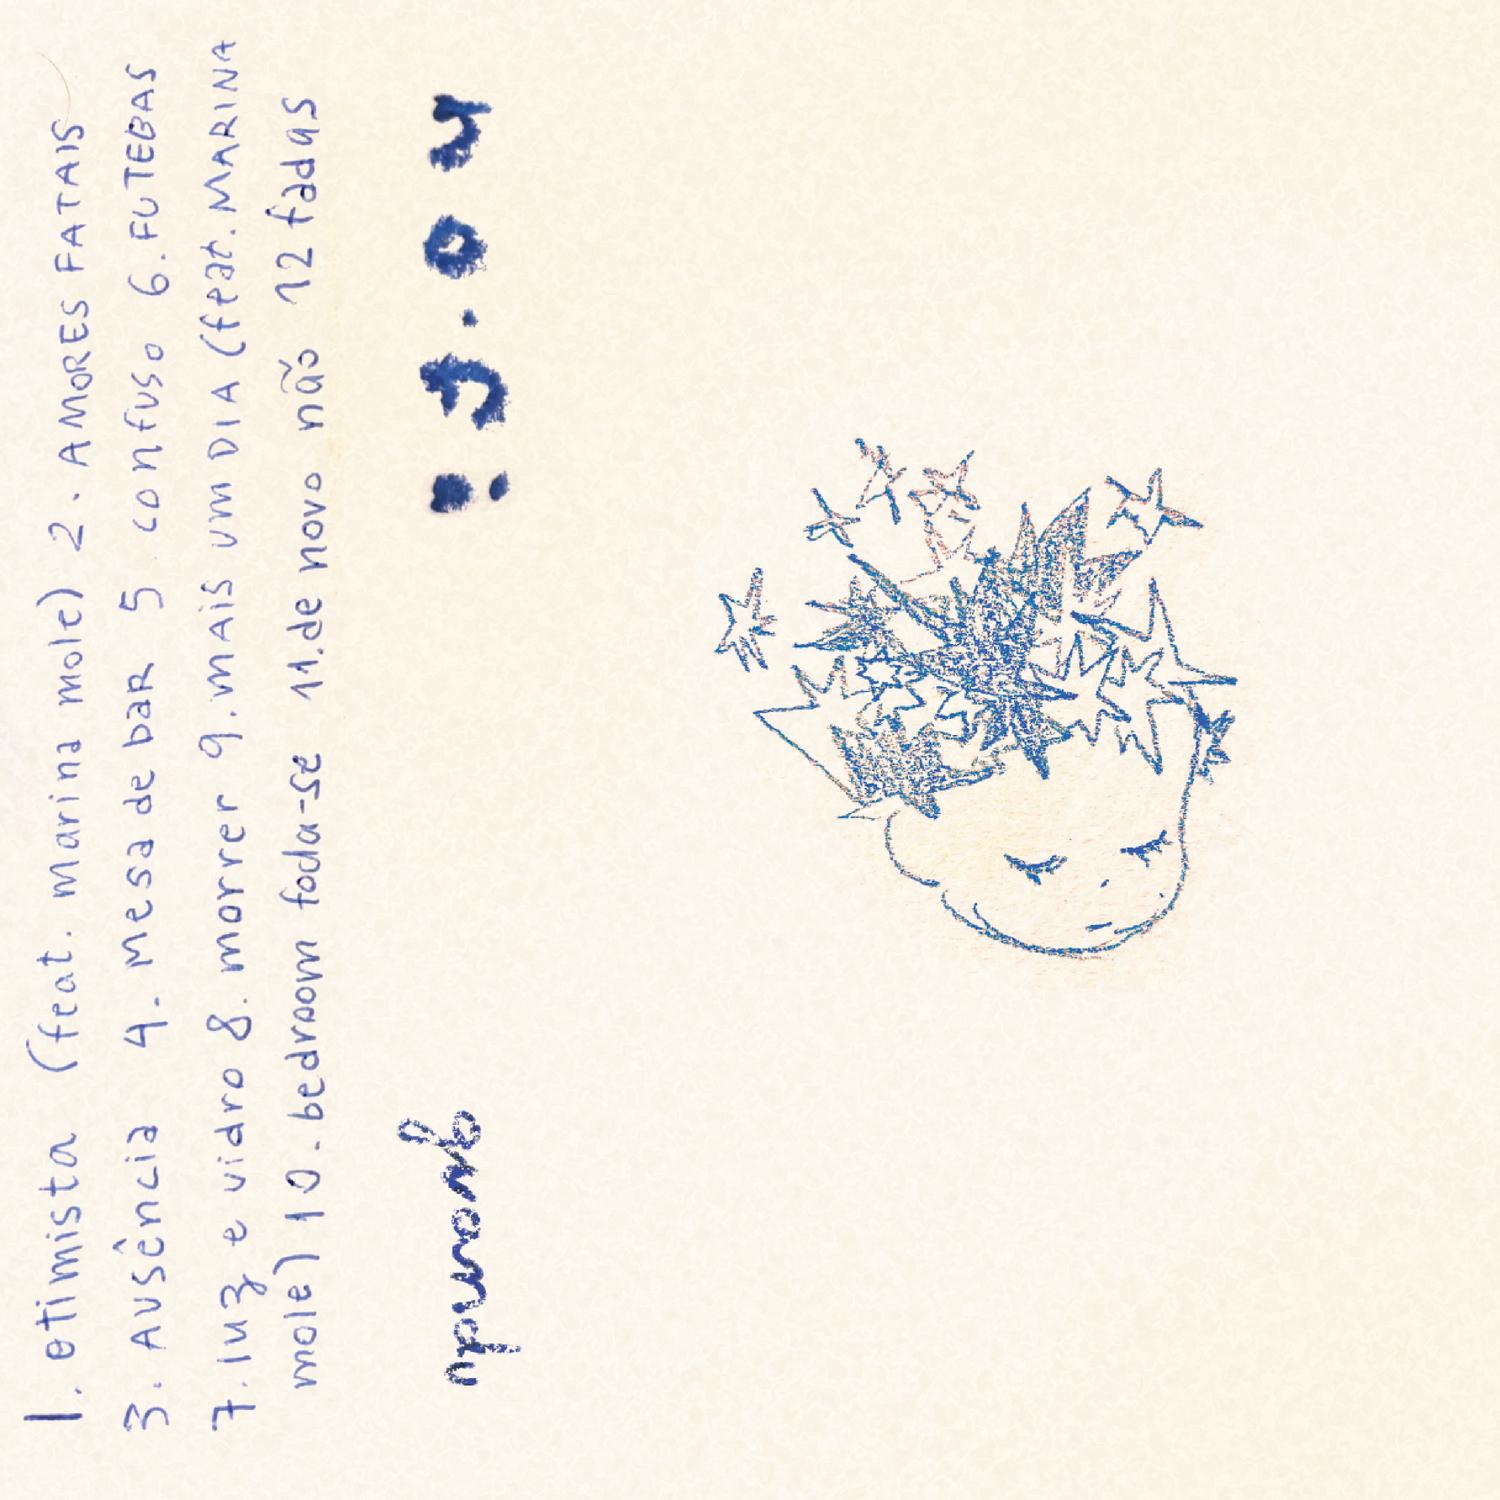 1. otimista (feat. marina mole) 2. AMORES FATAIS
3. AUSência 4. mesa de baR 5 confuso 6. FUTEBAS
7. luz e vidro 8. morrer 9. mais um DIA (feat. MARINA
mole) 10. bedroom foda-se 11. de novo não 12 fadas